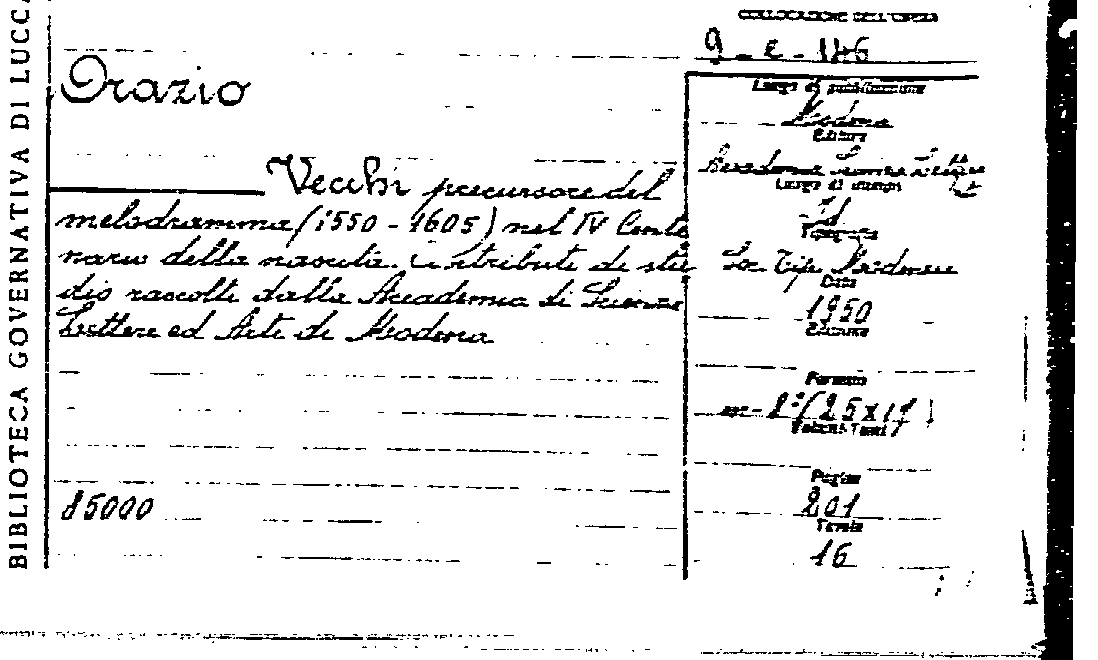 BIBLIOTECA GOVERNATIVA DI LUCCA
COLLOCAZIONE DELL'OPERA
9 - e - 146
Orazio
Vecchi precursore del
melodramma (1550 - 1605) nel IV Cente
nario della nascita. Contributi di stu
dio raccolti dalla Accademia di Scienze
Lettere ed Arti di Modena
85000
Luogo di pubblicazione
Modena
Editore
Accademia Scienze Lettere
Luogo di stampa
Id
Tipografia
Soc. Tip. Modenese
Data
1950
Edizione
Formato
m - 8° (25x17)
Volumi-Tomi
Pagine
201
Tavole
16